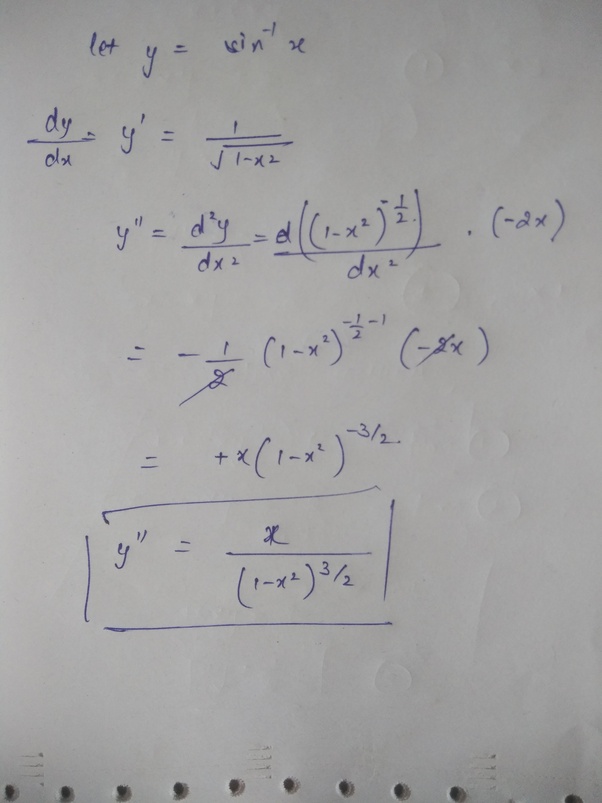 let y = sin⁻¹ x
dy/dx = y' = 1/√(1-x²)
y'' = d²y/dx² = d((1-x²)^(-1/2))/dx² . (-2x)
= - 1/2 (1-x²)^(-1/2 -1) (-2x)
= +x(1-x²)^(-3/2).
y'' = x/(1-x²)^(3/2)